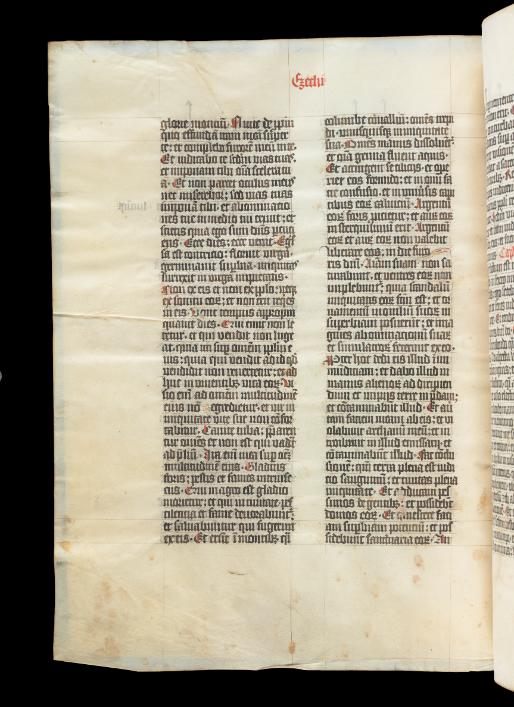 Ezechi
glorie montiū. Nunc de ꝓpin
quo effundā iram meā super
te: et complebo furorē meū in te.
Et iudicabo te scdm vias tuas:
et imponam tibi oīa scelera tu
a. Et non parcet oculus meus
nec miserebor: sed vias tuas
imponā tibi: et abominatio
nes tue in medio tui erunt: et
scietis quia ego sum dn̄s percu
ciens. Ecce dies: ecce venit. Egres
sa est contricio: floruit virga:
germinauit supbia: iniquitas
surrexit in virga impietatis.
Non ex eis et non ex pplo: neqꝫ
ex sonitu eoꝝ: et non erit requies
in eis. Venit tempus appropin
quauit dies. Qui emit non le
tetur: et qui vendit non luge
at: quia ira sup omnem pplm e
ius: quia qui vendit ad id qd
vendidit non reuertetur: et ad
huc in viuentibꝫ vita eoꝝ. Vi
sio enī ad omnem multitudinē
eius nō regredietur: et vir in
iniquitate vite sue non cōfor
tabitur. Canite tuba: ppaten
tur omnes et non est qui vadat
ad pliū. Ira enī mea sup oēm
multitudinē eius. Gladius
foris: pestis et fames intrinse
cus. Qui in agro est gladio
morietur: et qui in ciuitate pes
tilentia et fame deuorabuntur:
et saluabuntur qui fugerint
ex eis. Et erunt ī montibꝫ qsi
columbe cōuallium: omēs trepi
di: vnusquisqꝫ in iniquitate
sua. Omēs manus dissoluētᷣ:
et oīa genua fluent aquis.
Et accingent se cilicijs: et ope
riet eos formido: et in omī fa
cie confusio: et in vniūsis capi
tibus eoꝝ caluicium. Argentū
eoꝝ foris picietur: et aurū eoꝝ
in sterquiliniū erit. Argentū
eoꝝ et aurū eoꝝ non valebit
liberare eos: in die furo
ris dn̄i. Aiam suam non sa
turabunt: et ventres eoꝝ non
implebuntᷣ: quia scandalū
iniquitatis eoꝝ fctm est: et or
namentū moniliū suoꝝ in
superbiam posuerūt: et ima
gines abominationū suaꝝ
et simulacroꝝ fecerunt ex eo.
Propter hoc dedi eis illud in im
mūdiciam: et dabo illud in
manus alienoꝝ ad diripien
dum: et impijs terre in pdam:
et cōtaminabūt illud. Et auer
tam faciem meam ab eis: et vi
olabunt archanū meū: et in
troibunt in illud emissarij: et
cōtaminabūt illud. Fac cōclu
sionē: qm̄ terra plena est iudi
cio sanguinū: et ciuitas plena
iniquitate. Et adducam pes
simos de gentibꝫ: et possidebūt
domos eoꝝ. Et quiescere faci
am supbiam potentiū: et pos
sidebunt sanctuaria eoꝝ. An